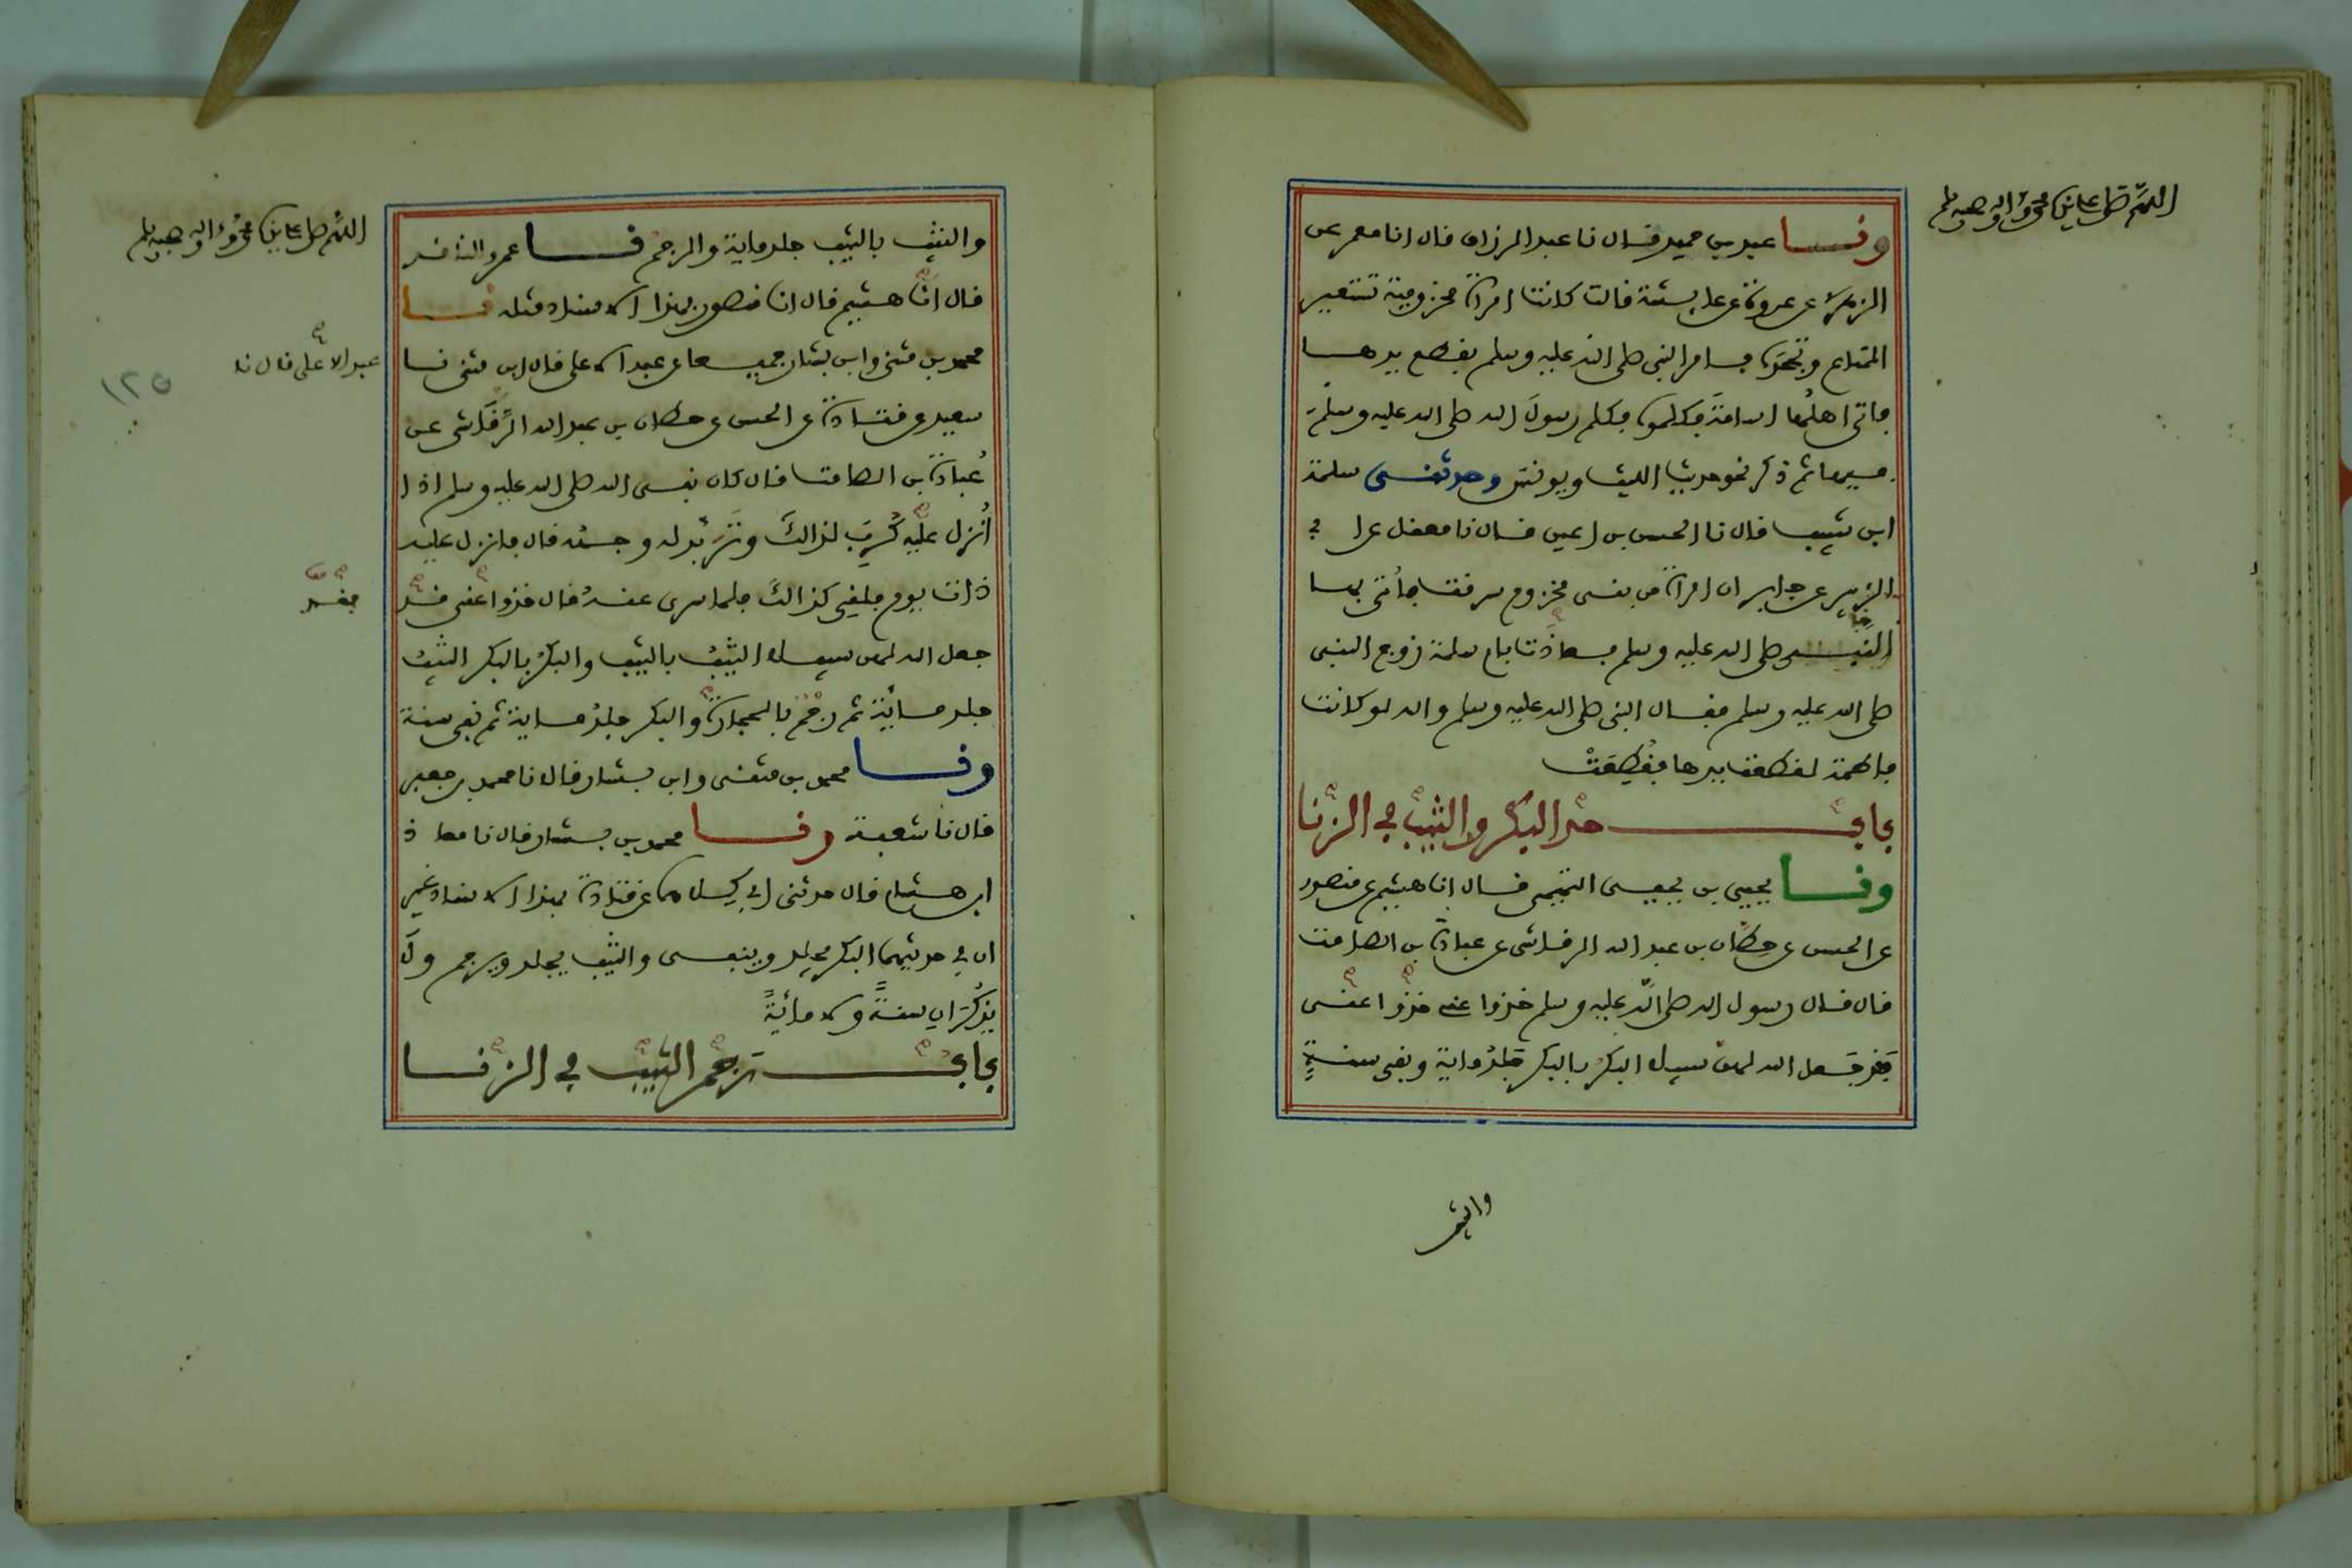 اللهم صل على سيدنا محمد وءاله وصحبه وسلم
ونا عبد بن حميد قال نا عبد الرزاق قال انا معمر عن
الزهري عن عروة عن عايشة قالت كانت امراة مخزومية تستعير
المتاع وتجحده فامر النبي صلى الله عليه وسلم بقطع يدها
فاتى اهلها اسامة فكلموه فكلم رسول الله صلى الله عليه وسلم
فيها ثم ذكر نحو حديث الليث ويونس وحدثنى سلمة
ابن شبيب قال نا الحسن بن اعين قال نا معقل عن ابي
الزبير عن جابر ان امراة من بنى مخزوم سرقت فأتى بها
النبى صلى الله عليه وسلم فعاذت بام سلمة زوج النبى
صلى الله عليه وسلم فقال النبى صلى الله عليه وسلم والله لو كانت
فاطمة لقطعت يدها فقطعت
باب حد البكر والثيب في الزنا
ونا يحيى بن يحيى التميمى قال انا هشيم عن منصور
عن الحسن عن حطان بن عبد الله الرقاشى عن عبادة بن الصامت
قال قال رسول الله صلى الله عليه وسلم خذوا عنى خذوا عنى
فقد جعل الله لهن سبيلا البكر بالبكر جلد ماية ونفي سنة
والثيب
اللهم صل على سيدنا محمد وءاله وصحبه وسلم
والثيب بالثيب جلد ماية والرجم نا عمرو الناقد
قال انا هشيم قال انا منصور بهذا الاسناد مثله نا
محمد بن مثنى وابن بشار جميعا عن عبد الاعلى قال ابن مثنى نا
عبد الاعلى قال نا
١٢٥
سعيد عن قتادة عن الحسن عن حطان بن عبد الله الرقاشى عن
عبادة بن الصامت قال كان نبى الله صلى الله عليه وسلم اذا
أنزل عليه كرب لذالك وتربد له وجهه قال فانزل عليه
ذات يوم فلقي كذالك فلما سرى عنه قال خذوا عنى قد
فقد
جعل الله لهن سبيلا الثيب بالثيب والبكر بالبكر الثيب
جلد ماية ثم رجم بالحجارة والبكر جلد ماية ثم نفي سنة
ونا محمد بن مثنى وابن بشار قالا نا محمد بن جعفر
قال نا شعبة ونا محمد بن بشار قال نا معاذ
ابن هشام قال حدثنى ابي كلاهما عن قتادة بهذا الاسناد غير
ان في حديثهما البكر يجلد وينفى والثيب يجلد ويرجم ولا
يذكران سنة ولا مائة
باب رجم الثيب في الزنا